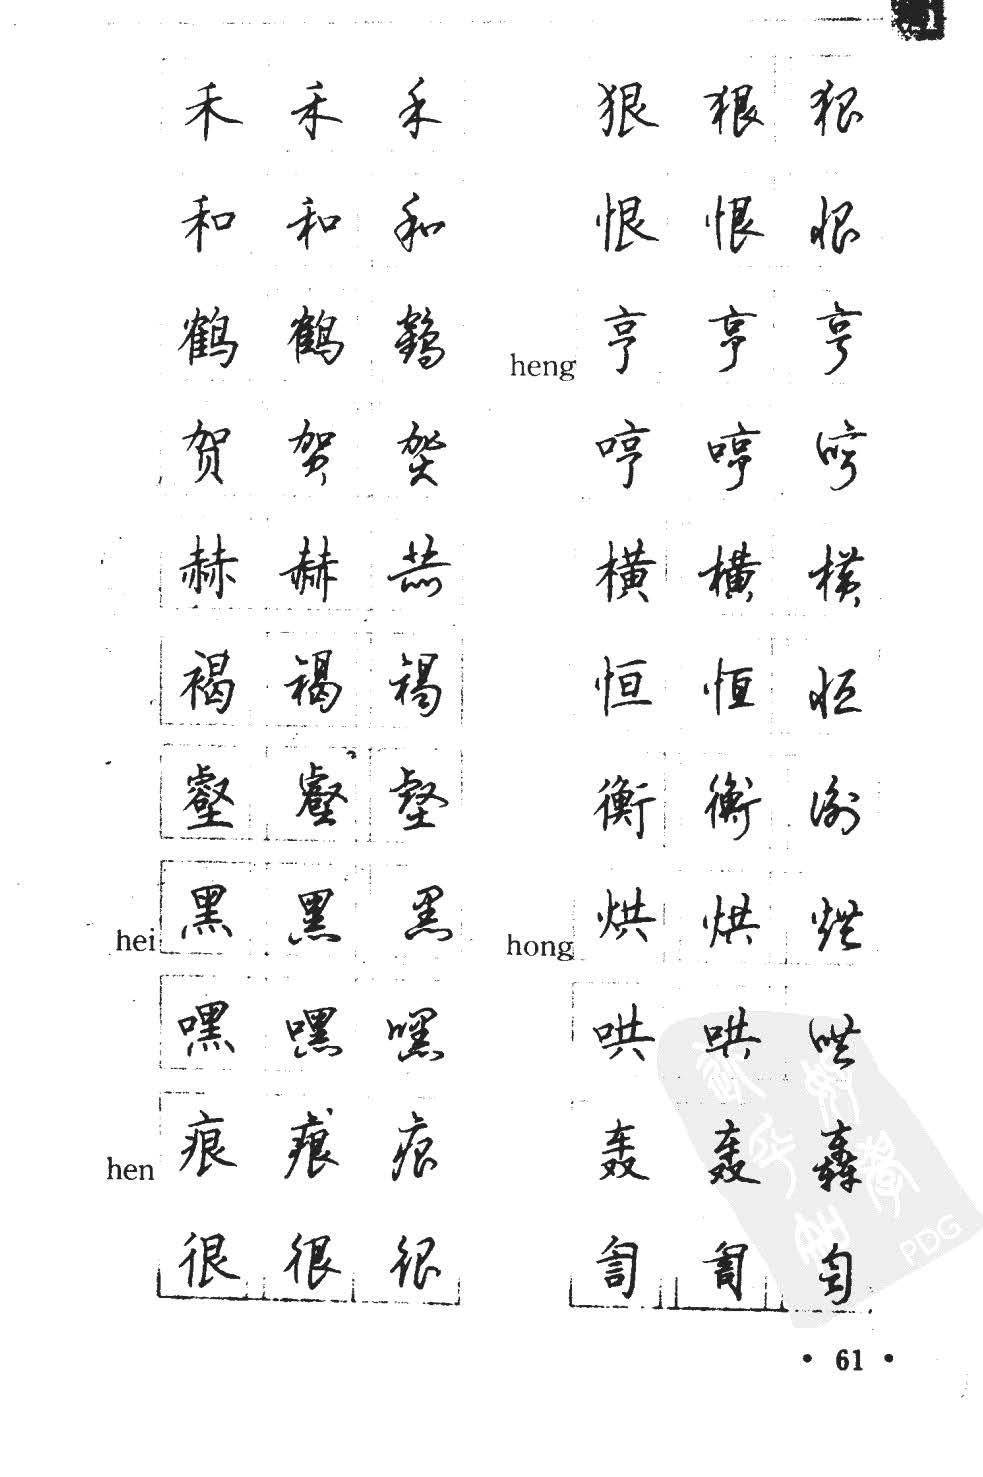 禾 禾 禾
和 和 和
鹤 鹤 鹤
贺 贺 贺
赫 赫 赫
褐 褐 褐
壑 壑 壑
hei 黑 黑 黑
嘿 嘿 嘿
hen 痕 痕 痕
很 很 很
狠 狠 狠
恨 恨 恨
heng 亨 亨 亨
哼 哼 哼
横 横 横
恒 恒 恒
衡 衡 衡
hong 烘 烘 烘
哄 哄 哄
轰 轰 轰
訇 訇 訇
PDG
• 61 •